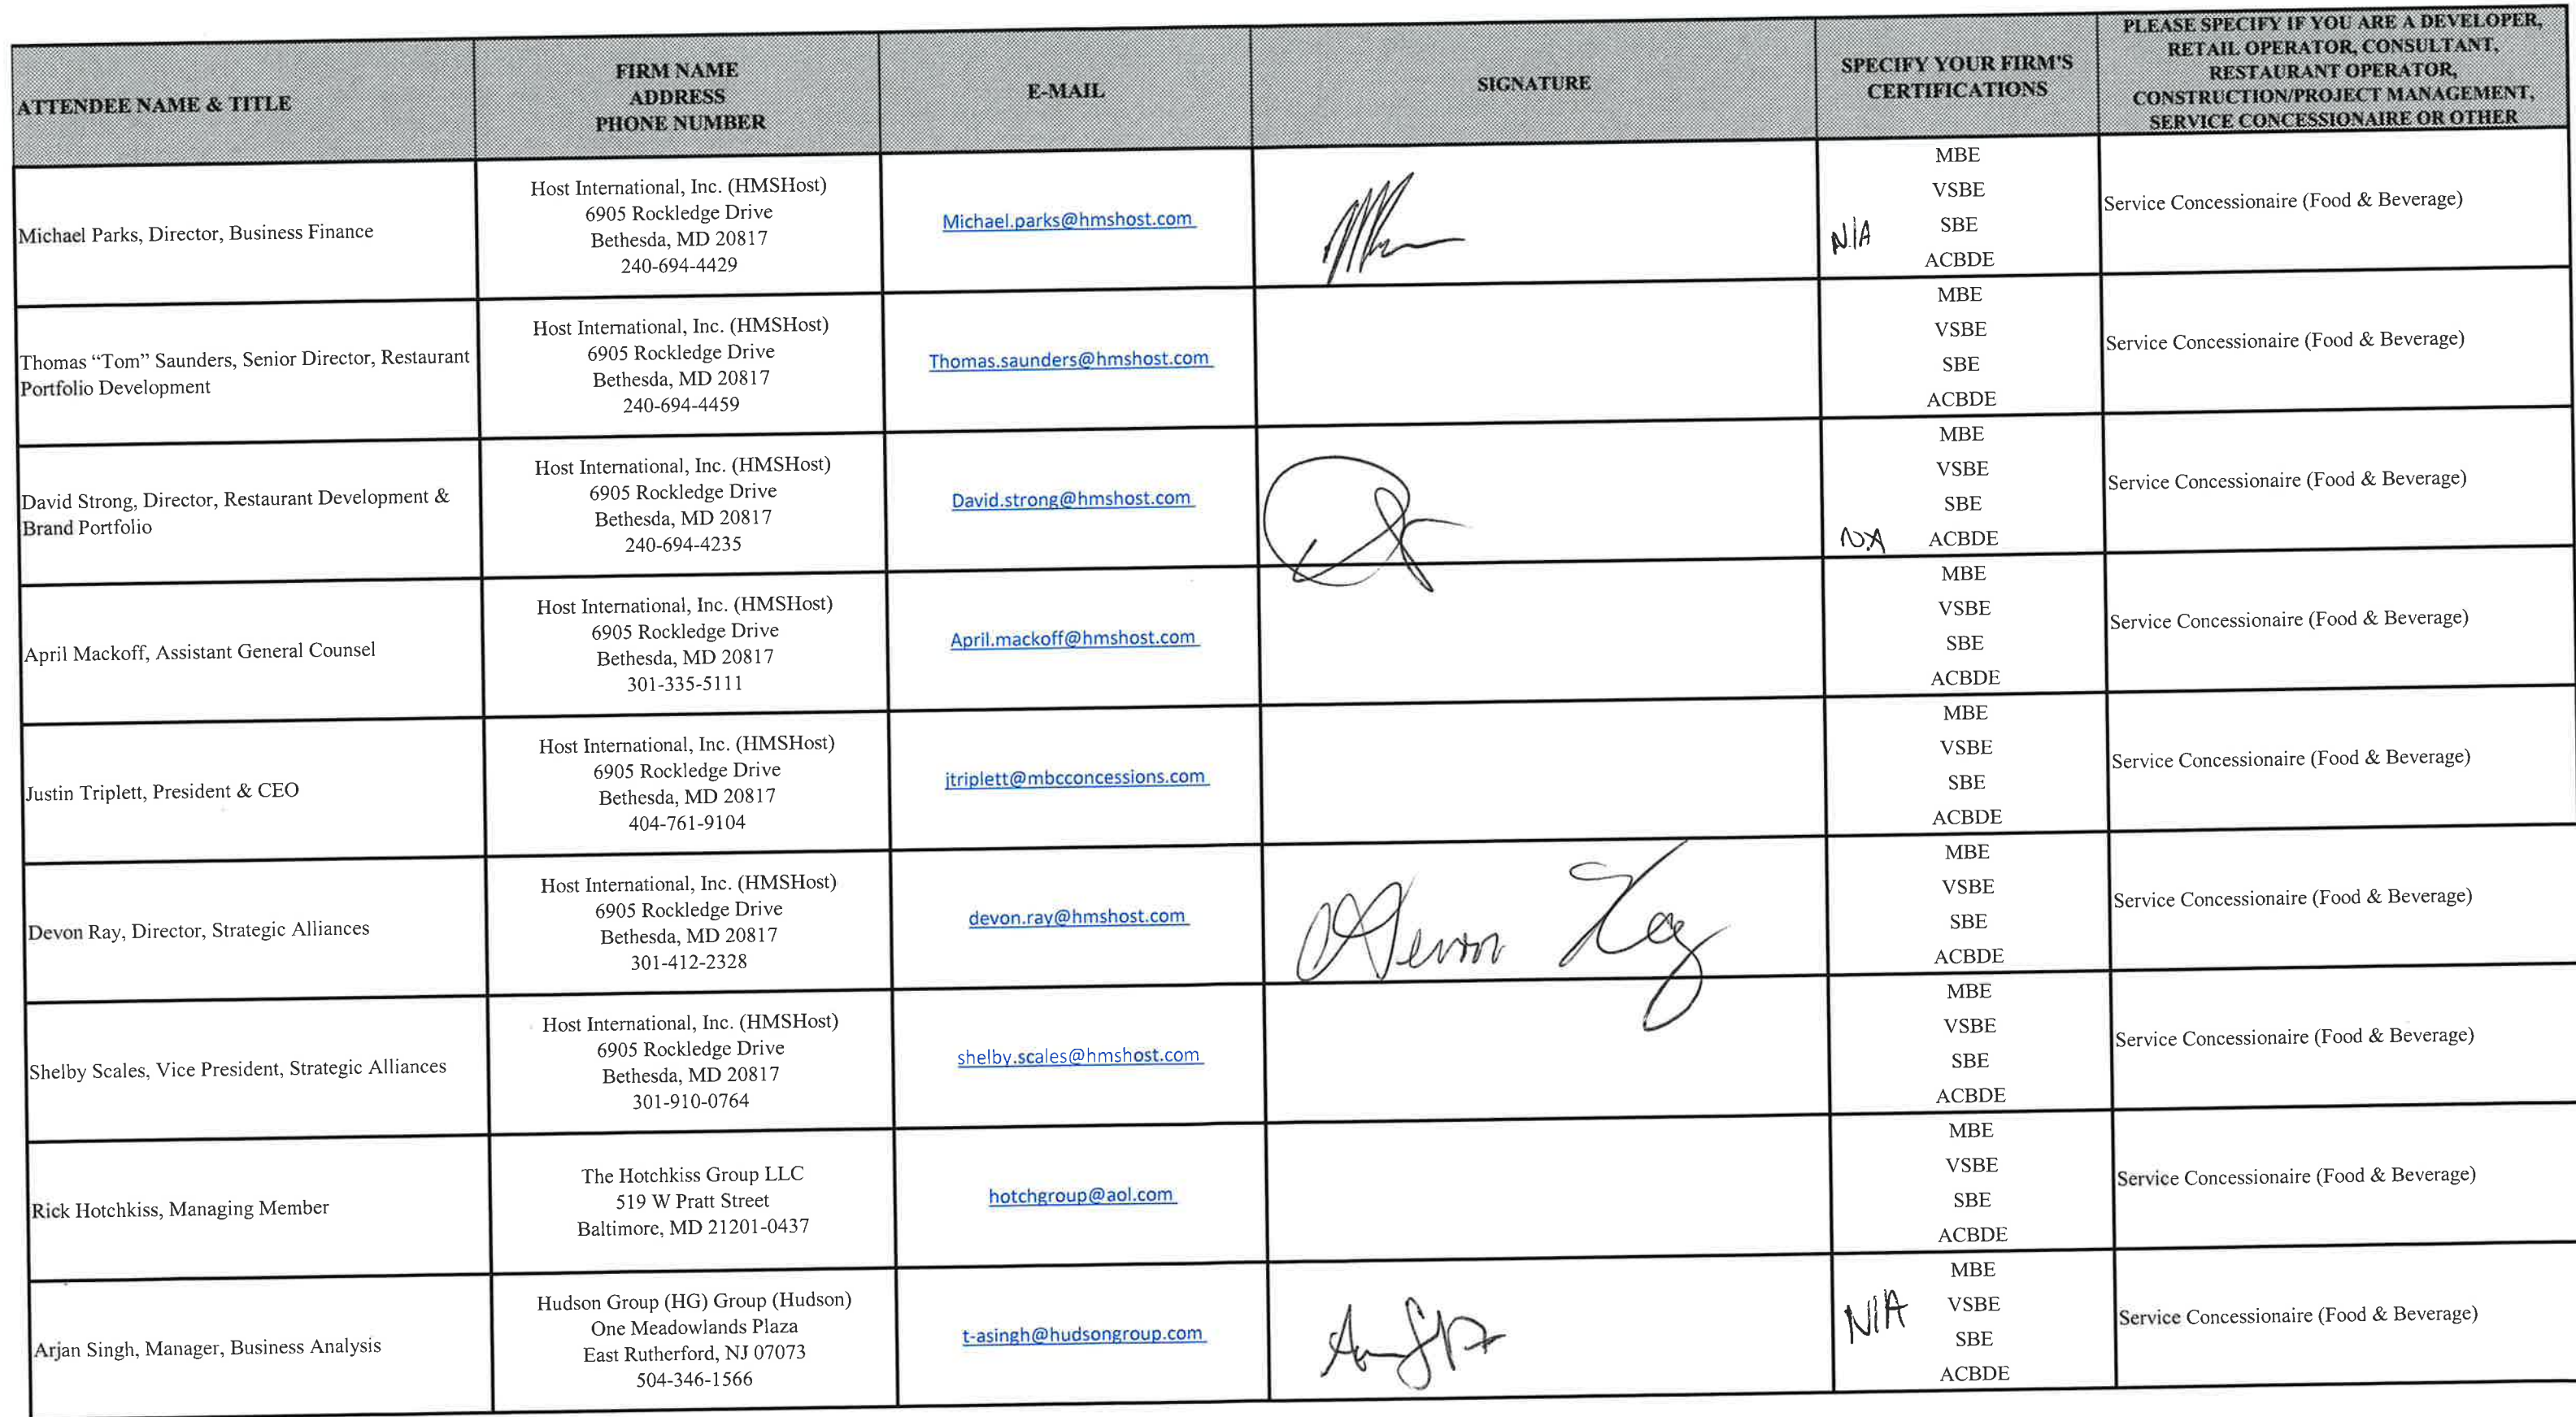 ATTENDEE NAME & TITLE
FIRM NAME
ADDRESS
PHONE NUMBER
E-MAIL
SIGNATURE
SPECIFY YOUR FIRM'S
CERTIFICATIONS
PLEASE SPECIFY IF YOU ARE A DEVELOPER,
RETAIL OPERATOR, CONSULTANT,
RESTAURANT OPERATOR,
CONSTRUCTION/PROJECT MANAGEMENT,
SERVICE CONCESSIONAIRE OR OTHER
Michael Parks, Director, Business Finance
Host International, Inc. (HMSHost)
6905 Rockledge Drive
Bethesda, MD 20817
240-694-4429
Michael.parks@hmshost.com
N/A
MBE
VSBE
SBE
ACBDE
Service Concessionaire (Food & Beverage)
Thomas “Tom” Saunders, Senior Director, Restaurant
Portfolio Development
Host International, Inc. (HMSHost)
6905 Rockledge Drive
Bethesda, MD 20817
240-694-4459
Thomas.saunders@hmshost.com
MBE
VSBE
SBE
ACBDE
Service Concessionaire (Food & Beverage)
David Strong, Director, Restaurant Development &
Brand Portfolio
Host International, Inc. (HMSHost)
6905 Rockledge Drive
Bethesda, MD 20817
240-694-4235
David.strong@hmshost.com
MBE
VSBE
SBE
N.A ACBDE
Service Concessionaire (Food & Beverage)
April Mackoff, Assistant General Counsel
Host International, Inc. (HMSHost)
6905 Rockledge Drive
Bethesda, MD 20817
301-335-5111
April.mackoff@hmshost.com
MBE
VSBE
SBE
ACBDE
Service Concessionaire (Food & Beverage)
Justin Triplett, President & CEO
Host International, Inc. (HMSHost)
6905 Rockledge Drive
Bethesda, MD 20817
404-761-9104
jtriplett@mbcconcessions.com
MBE
VSBE
SBE
ACBDE
Service Concessionaire (Food & Beverage)
Devon Ray, Director, Strategic Alliances
Host International, Inc. (HMSHost)
6905 Rockledge Drive
Bethesda, MD 20817
301-412-2328
devon.ray@hmshost.com
Devon Ray
MBE
VSBE
SBE
ACBDE
Service Concessionaire (Food & Beverage)
Shelby Scales, Vice President, Strategic Alliances
Host International, Inc. (HMSHost)
6905 Rockledge Drive
Bethesda, MD 20817
301-910-0764
shelby.scales@hmshost.com
MBE
VSBE
SBE
ACBDE
Service Concessionaire (Food & Beverage)
Rick Hotchkiss, Managing Member
The Hotchkiss Group LLC
519 W Pratt Street
Baltimore, MD 21201-0437
hotchgroup@aol.com
MBE
VSBE
SBE
ACBDE
Service Concessionaire (Food & Beverage)
Arjan Singh, Manager, Business Analysis
Hudson Group (HG) Group (Hudson)
One Meadowlands Plaza
East Rutherford, NJ 07073
504-346-1566
t-asingh@hudsongroup.com
N/A
MBE
VSBE
SBE
ACBDE
Service Concessionaire (Food & Beverage)